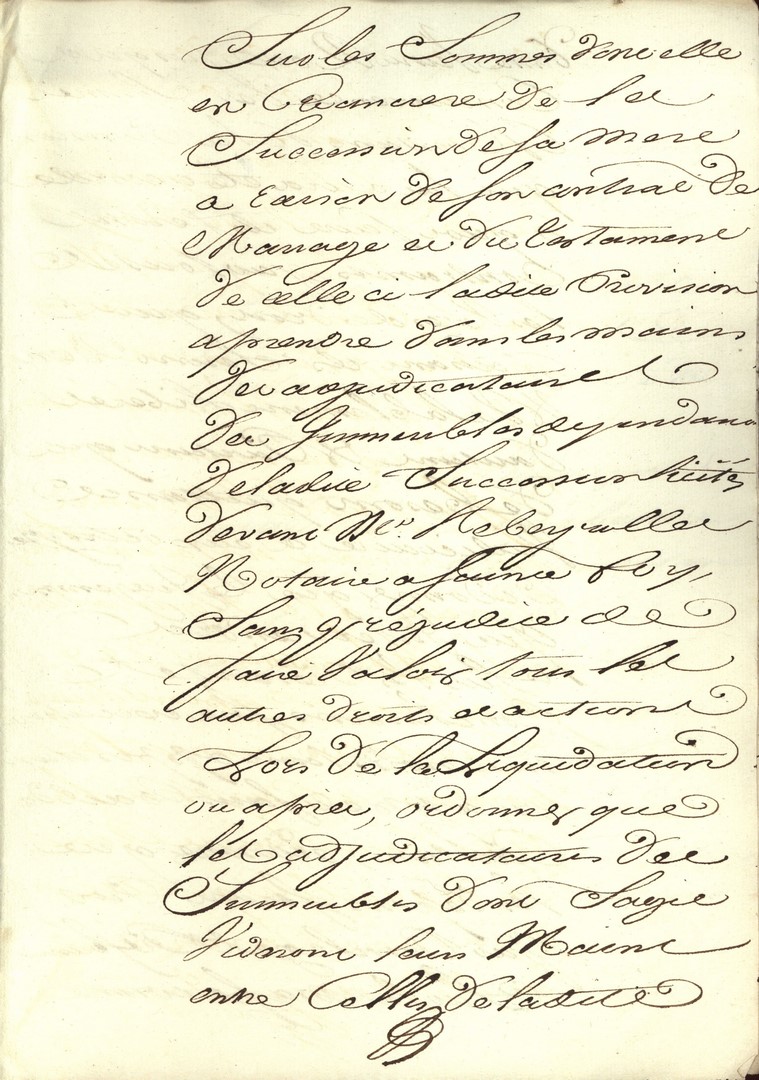 Sur les Sommes dont elle
en Creanciere de la
Succession de sa mere
a raison de son contrat de
Mariage et du Testament
de celle ci ladite Provision
a prendre dans les mains
des adjudicataires
des Immeubles dependans
de ladite Succession licités
devant Me. Rebeyrolles
Notaire a Sainte foy,
Sans préjudice de
faire Valoir tous les
autres droits et actions
Lors de la Liquidation
ou apres, ordonner que
les adjudicataires des
Immeubles dont Sagit
Videront leurs Mains
entre Celles de ladite